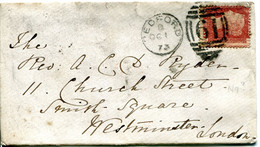 BEDFORD
OC 1
73
61
The
Rev. A. C. D. Ryder.
11. Church Street
Smith Square.
Westminster.
London.